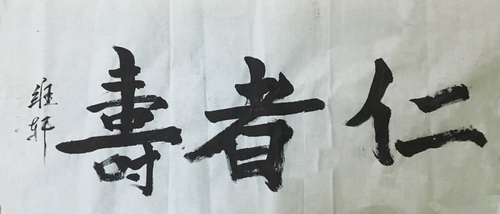 仁者壽
維軒